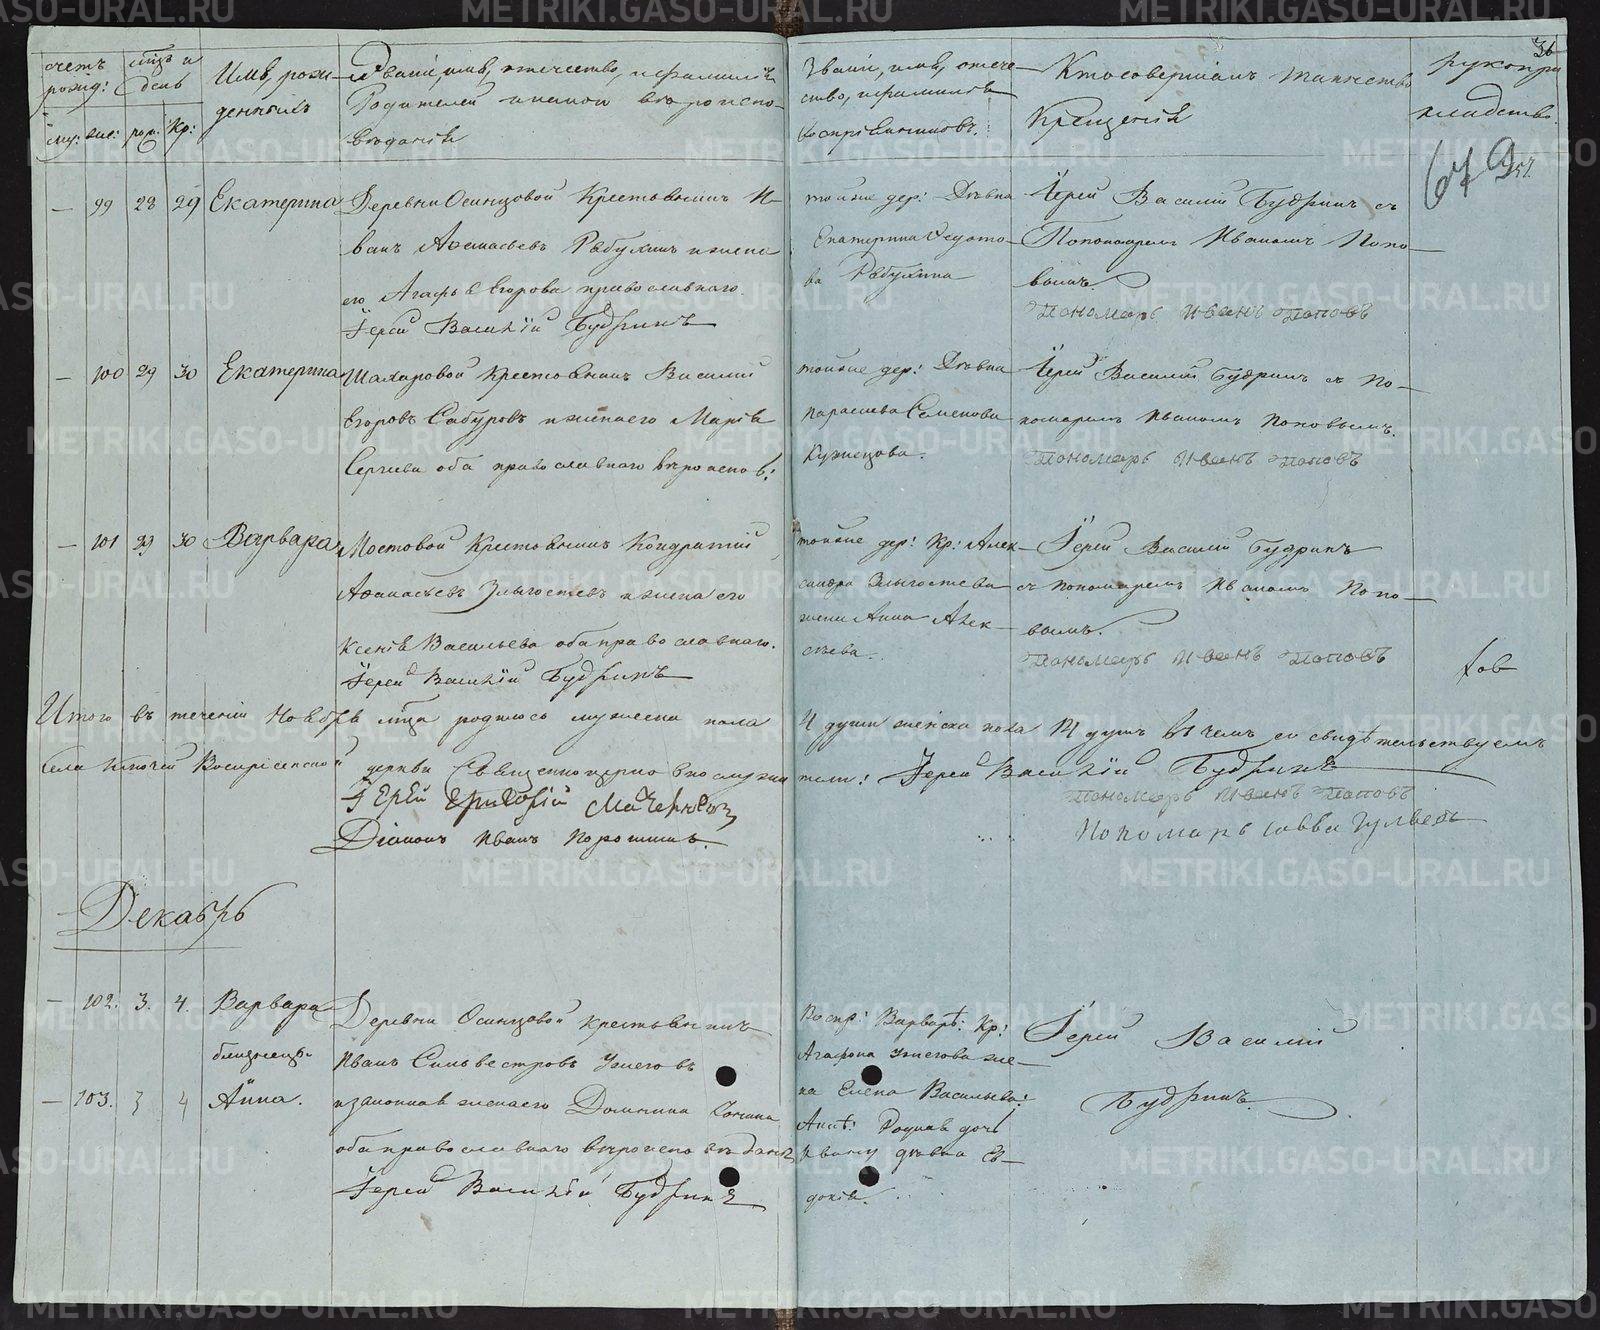 36
счетъ рожд: мцъ и день Имя рожденныхъ Званіе, имя, отчество, и фамилія
Родителей и какой вѣроиспо-
вѣданія
му: жен: рож: Кр:
Званіе, имя, отече-
ство, и фамилія
воспріемниковъ.
Кто совершалъ таинство
Крещенія
рукопри
кладство.
679
— 99 28 29 Екатерина Деревни Осинцовой Крестьянинъ И-
ванъ Афанасьевъ Рябухинъ и жена
его Агафья Егорова православнаго
Іерей Василій Будринъ
той же дер: Дѣвка
Екатерина Федото-
ва Рябухина
Іерей Василій Будринъ съ
Пономаремъ Иваномъ Попо-
вымъ.
Пономарь Иванъ Поповъ
— 100 29 30 Екатерина Шахаровой Крестьянинъ Василій
Егоровъ Сабуровъ и жена его Марія
Сергѣева оба православнаго вѣроиспов:
той же дер: Дѣвка
Параскева Семенова
Кузнецова.
Іерей Василій Будринъ съ по-
номаремъ Иваномъ Поповымъ.
Пономарь Иванъ Поповъ
— 101 29 30 Варвара Мостовой Крестьянинъ Кондратій
Афанасьевъ Злыгостевъ и жена его
Ксенія Васильева оба православнаго.
Іерей Василій Будринъ
той же дер: Кр: Алек-
сандра Злыгостева
жена Анна Алек-
сѣева.
Іерей Василій Будринъ
съ пономаремъ Иваномъ Попо-
вымъ.
Пономарь Иванъ Поповъ
Итого въ теченіи Ноября мца родилось мужеска пола
И душъ женска пола И душъ въ чемъ и свидѣтельствуемъ
села Ключей Воскресенской церкви Священноцерковнослужи
тели: Іерей Василій Будринъ
Іерей
Діаконъ Иванъ Порошинъ.
Пономарь Иванъ Поповъ
Пономарь Савва
Декабрь
— 102. 3. 4. Варвара
близнецы
— 103. 3 4 Анна.
Деревни Осинцовой крестьянинъ
Иванъ Сильвестровъ Ужеговъ
и законная жена его Домнина
оба православнаго вѣроисповѣданія
Іерей Василій Будринъ
Воспр: Варварѣ: Кр:
Агафона Ужегова же-
на Елена Васильева:
Аннѣ: Родная дочь
Ивану дѣвка Ев-
докія.
Іерей Василій
Будринъ.